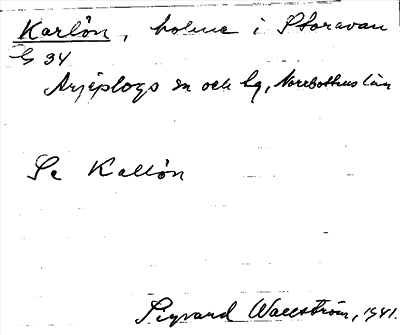 Karlön, holme i Storavan
G 34
Arjeplogs sn och lg, Norrbottens län
Se Kallön
Sigvard Wallström, 1941.